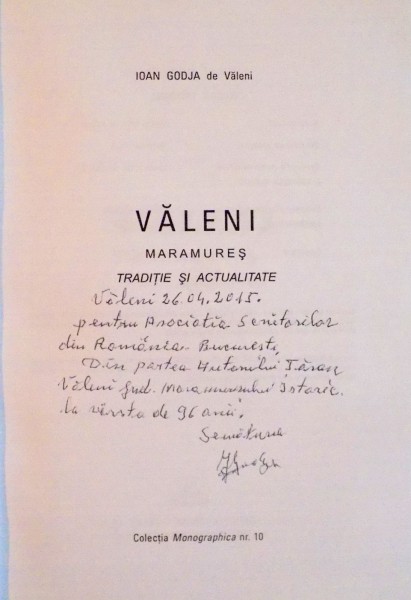 IOAN GODJA de Văleni
VĂLENI
MARAMUREȘ
TRADIȚIE ȘI ACTUALITATE
Văleni 26.04.2015.
pentru Asociatia Scriitorilor
din România Bucuresti,
Din partea Autorului Țăran
Văleni Jud. Maramuresului Istoric.
la vârsta de 96 anii.
Semătura
Colecția Monographica nr. 10